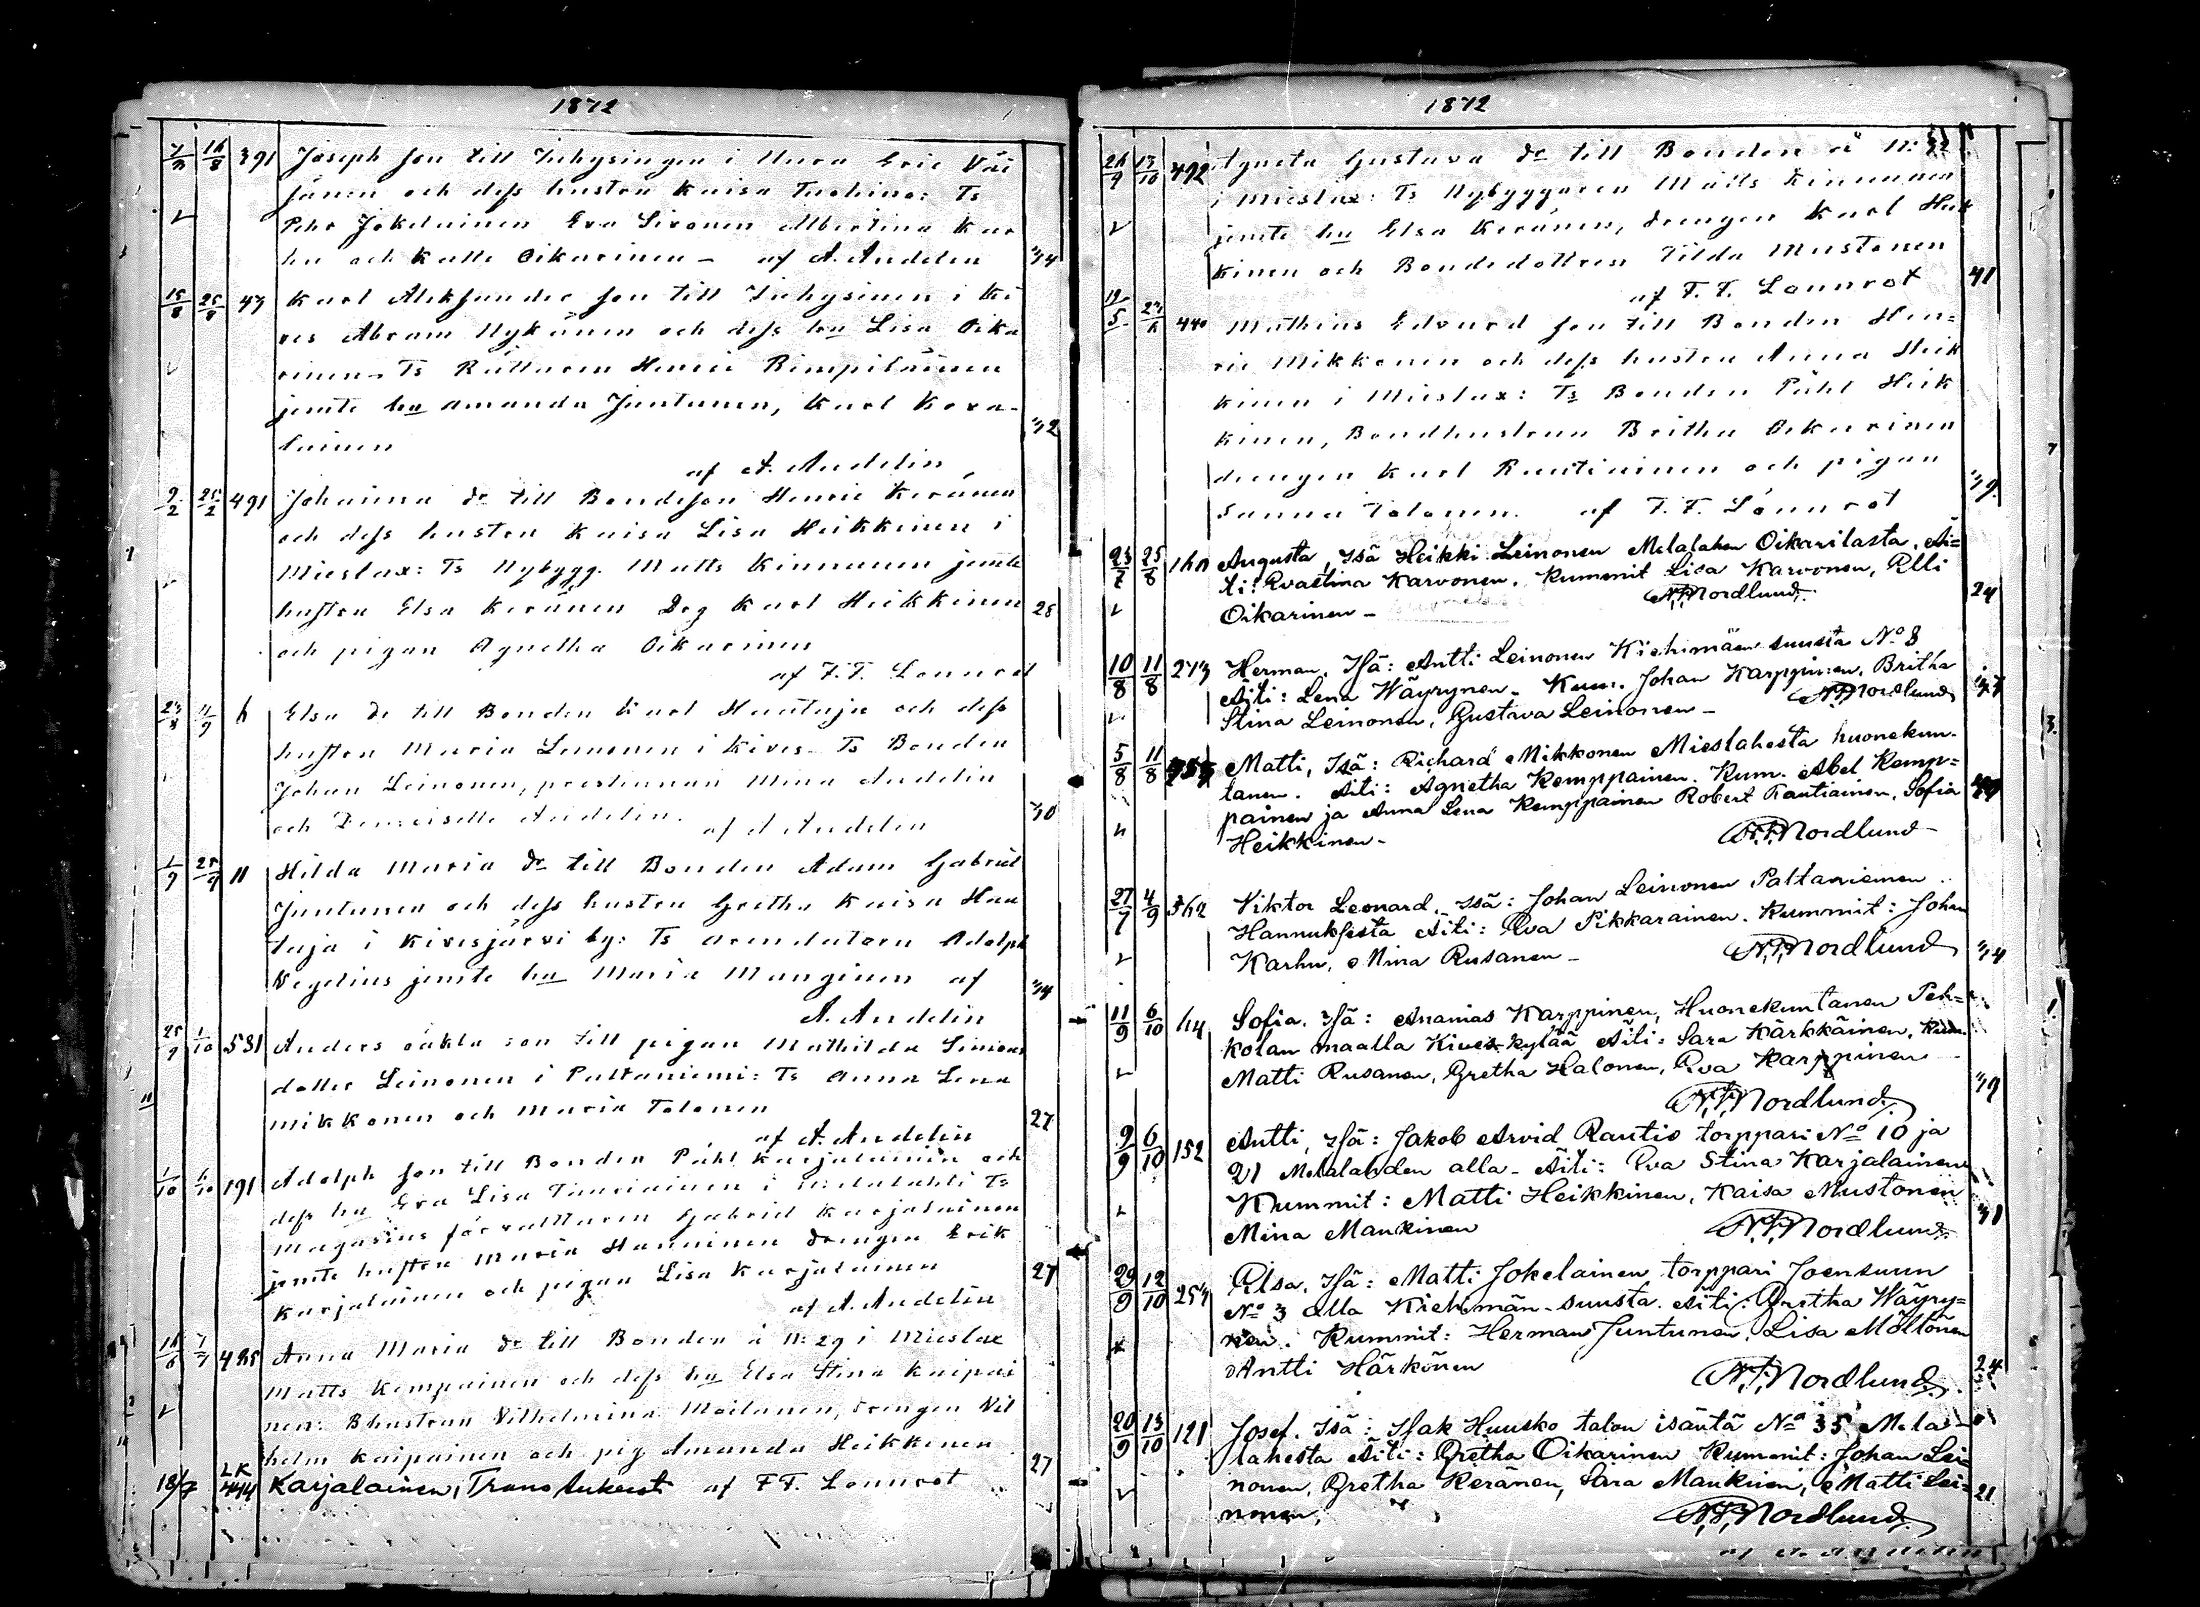 1872
7/8 16/8 391 Joseph son till Inhysingen i Uura Eric Väi
sänen och dess hustru Kaisa Tuohino: Ts
Pehr Jokelainen Eva Sironen Albertina Kar
hu och Kalle Oikarinen — af A. Andelin 34
15/8 25/8 47 Karl Aleksander son till Inhysinen i Ki
ves Abram Nykänen och dess hu Lisa Oika
rinen. Ts Rättaren Henric Rimpiläinen
jemte hu Amanda Juntunen, Karl Kova-
lainen 32
af A. Andelin
9/2 25/2 491 Johanna dr till Bondeson Henric Keränen
och dess hustru Kaisa Lisa Heikkinen i
Mieslax: Ts Nybygg. Matts Kinnunen jemte
hustru Elsa Keränen Drg Karl Heikkinen 28
och pigan Agnetha Oikarinen
af F. F. Lönnrot
6 Elsa dr till Bonden Karl Hautaja och dess
hustru Maria Leinonen i Kives. Ts Bonden
Johan Leinonen, prestinnan Mina Andelin
och Demoiselle Andelin. af A Andelin 30
1/9 11 Hilda Maria dr till Bonden Adam Gabriel
Juntunen och dess hustru Gretha Kaisa Hau
taja i Kivesjärvi by: Ts arendatorn Adolph
Vegelius jemte hu Maria Manginen af 34
A. Andelin
25/9 1/10 531 Anders oäkta son till pigan Mathilda Simons
dotter Leinonen i Paltaniemi: Ts Anna Lena
Mikkonen och Maria Tolonen 27
af A. Andelin
1/10 6/10 191 Adolph son till Bonden Påhl Karjalainen och
dess hu Eva Lisa Tauriainen i Melalahti Ts
Magasins förvalttaren Gabriel Karjalainen
jemte hustru Maria Hanninen drengen Erik
Karjalainen och pigan Lisa Karjalainen 27
af A. Andelin
16/6 7/7 485 Anna Maria dr till Bonden å N: 29 i Mieslax
Matts Kemppainen och dess hu Elsa Stina Kaipai
nen: Bhustrun Vilhelmina Moilanen, drengen Vil
helm Kaipainen och pig Amanda Heikkinen 27
18/7 LK 444 Karjalainen, Frans Aukusti af F F. Lönnrot
1872
26/9 13/10 492 Agneta Gustava dr till Bonden å N:
i Mieslax: Ts Nybyggaren Matts Kinnunen
jemte hu Elsa Keränen, drengen Karl Heik
kinen och Bondedottren Tilda Mustonen
af F. F. Lönnrot 41
19/5 440 Mathias Edvard son till Bonden Hen=
ric Mikkonen och dess hustru Anna Heik
kinen i Mieslax: Ts Bonden Påhl Heik
kinen, Bondhustrun Britha Oikarinen
drengen Karl Rautiainen och pigan
Sanna Tolonen. af F. F. Lönnrot 39.
25/8 160 Augusta, Isä Heikki Leinonen Melalahen Oikarilasta, Äi=
ti: Evastina Karvonen. Kummit Lisa Karvonen, Elli
Oikarinen — Nordlund. 24
10/8 11/8 273 Herman, Isä: Antti Leinonen Kiehimäen suusta No 8
Äiti: Lena Wäyrynen. Kum. Johan Karppinen, Britha
Stina Leinonen, Gustava Leinonen — Nordlund 37
5/8 11/8 Matti, Isä: Richard Mikkonen Mieslahesta huonekun-
tanen. Äiti: Agnetha Kemppainen. Kum. Abel Kemp=
painen ja Anna Lena Kemppainen Robert Rautiainen, Sofia
Heikkinen — Nordlund —
27/7 4/9 362 Viktor Leonard. Isä: Johan Leinonen Paltaniemen
Hannuksesta Äiti: Eva Pikkarainen. Kummit: Johan
Karhu, Mina Rusanen — Nordlund 34
11/9 6/10 64 Sofia. Isä: Ananias Karppinen, Huonekuntanen Peh=
kolan maalla Kives kylää Äiti: Sara Kärkkäinen, Kum.
Matti Rusanen, Gretha Halonen, Eva Karppinen
Nordlund 39
9/9 6/10 152 Antti, Isä: Jakob Arvid Rautio torppari No 10 ja
21 Melalahden alla — Äiti: Eva Stina Karjalainen
Kummit: Matti Heikkinen, Kaisa Mustonen
Mina Mankinen Nordlund 31
29/9 12/10 253 Elsa. Isä: Matti Jokelainen torppari Joensuun
No 3 alla Kiehimän-suusta. Äiti: Gretha Wäyry=
nen. Kummit: Herman Juntunen, Lisa Möttönen
Antti Härkönen Nordlund. 24
20/9 13/10 121 Josef. Isä: Isak Huusko talon isäntä No 35 Mela
lahesta Äiti: Gretha Oikarinen Kummit: Johan Lei
nonen, Gretha Keränen, Sara Mankinen, Matti Lei= 21
nonen, Nordlund.